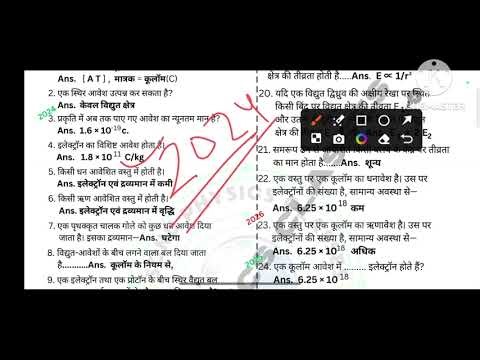 Ans. [ A T ] , मात्रक = कूलॉम(C)
2. एक स्थिर आवेश उत्पन्न कर सकता है?
2024
Ans. केवल विद्युत क्षेत्र
3. प्रकृति में अब तक पाए गए आवेश का न्यूनतम मान है?
Ans. 1.6 × 10⁻¹⁹c.
4. इलेक्ट्रॉन का विशिष्ट आवेश होता है।
Ans. 1.8 × 10¹¹ C/kg
5. किसी धन आवेशित वस्तु में होती है।
Ans. इलेक्ट्रॉन एवं द्रव्यमान में कमी
6. किसी ऋण आवेशित वस्तु में होती है।
Ans. इलेक्ट्रॉन एवं द्रव्यमान में वृद्धि
7. एक पृथक्कृत चालक गोले को कुछ धन आवेश दिया
जाता है। इसका द्रव्यमान— Ans: घटेगा
8. विद्युत-आवेशों के बीच लगने वाला बल दिया जाता
है...........Ans. कूलॉम के नियम से,
9. एक इलेक्ट्रॉन तथा एक प्रोटॉन के बीच स्थिर वैद्युत बल
2024
PHYSICS
क्षेत्र की तीव्रता होती है.....Ans. E ∝ 1/r³
20. यदि एक विद्युत द्विध्रुव की अक्षीय रेखा पर स्थित
किसी बिंदु पर विद्युत क्षेत्र की तीव्रता E
और
क्षेत्र की E₂
21. समरूप
का मान होता है....... Ans. शून्य
22. एक वस्तु पर एक कूलॉम का धनावेश है। उस पर
इलेक्ट्रॉनों की संख्या है, सामान्य अवस्था से—
Ans. 6.25 × 10¹⁸ कम
2026
23. एक वस्तु पर एक कूलॉम का ऋणावेश है। उस पर
इलेक्ट्रॉनों की संख्या है, सामान्य अवस्था से—
Ans. 6.25 × 10¹⁸ अधिक
24. एक कूलॉम आवेश में ......... इलेक्ट्रॉन होते हैं?
Ans. 6.25 × 10¹⁸